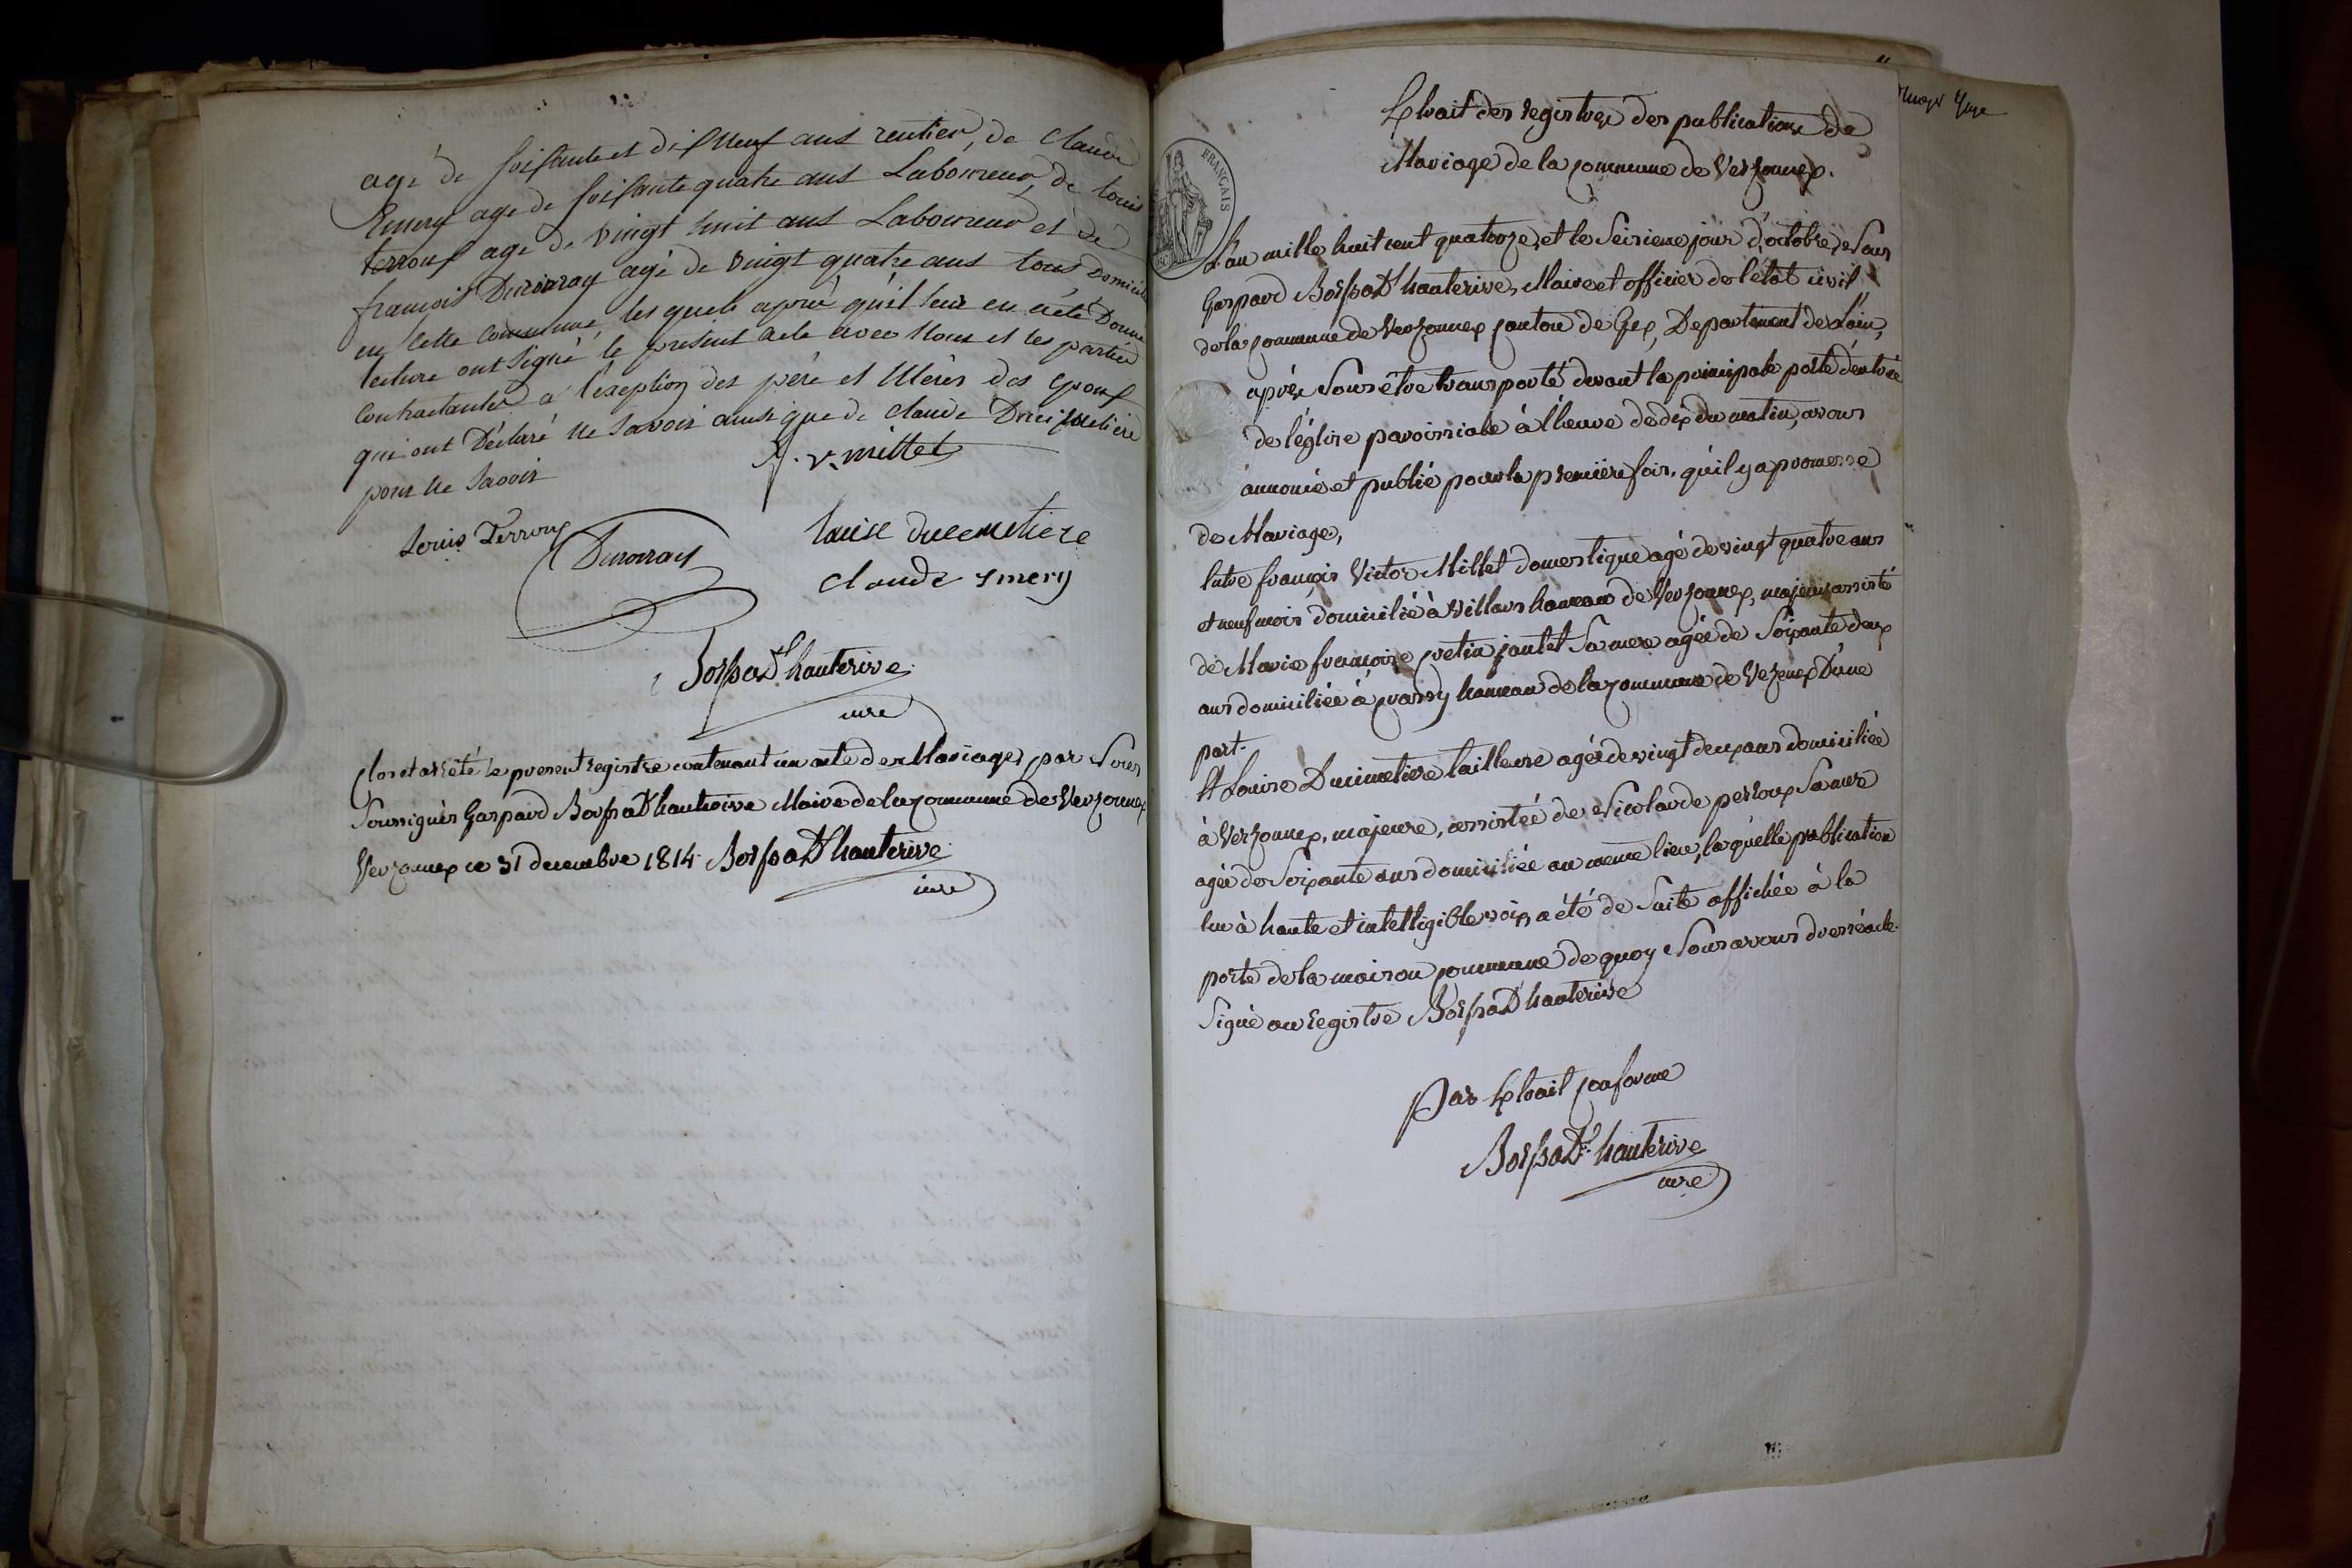 agé de soissante et dis Neuf ans rentier, de Claude
Emery age de soissante quatre ans Laboureur, de Louis
terroux age de vingt huit ans Laboureur et de
francois Duronray agé de vingt quatre ans tous Domicilie
en Cette Commune, les quels aprué quil leur en aété Donné
lecture ont signé le present acte avec Nous et les parties
Contractantes a l'exeption des père et Mères des Epoux
qui ont Déclaré ne savoir ainsi que de Claude Ducimetiere
pour ne Savoir
f. v. millet
Louis Terroux
Duronray
louise ducemetiere
claude emery
Borssat D'hauterive
mre
Clos et arrêté le present registre contenant un acte de Mariages, par Nous
Soussignés Gaspard Borssat D'hauterive Maire de la commune de Versonnex
Versonnex ce 31 decembre 1814. Borssat D'hauterive
mre
Extrait des registres des publications de
Mariage de la commune de Versonnex.
FRANCAIS
L'an mille huit cent quatorze, et le Seisieme jour d'octobre, Nous
Gaspard Borssat D'hauterive, Maire et officier de l'état civil
de la commune de Versonnex canton de Gex, Departement de l'ain,
après Nous être transporté devant la principale porte d'entrée
de l'église paroissiale à l'heure de dix du matin, avons
annoncé et publié pour la premiere fois, qu'il y a promesse
de Mariage,
Entre françois Victor Millet domestique agé de vingt quatre ans
et neuf mois domicilié à Villars hameau de Versonnex, majeur assisté
de Marie françoise cretin jantet Sa mere agée de Soixante deux
ans domiciliée à crassy hameau de la commune de Vezenex D'une
part.
Et Louise Ducimetiere tailleuse agée de vingt deux ans domiciliée
à Versonnex, majeure, assistée de Nicolarde perroux Sa mere
agée de Soixante ans domiciliée au même lieu, laquelle publication
lue à haute et intelligible voix, a été de Suite affichée à la
porte de la maison commune de quoy Nous avons dressé acte.
Signé au registre Borssat D'hauterive
Par Extrait conforme
Borssat D'hauterive
mre